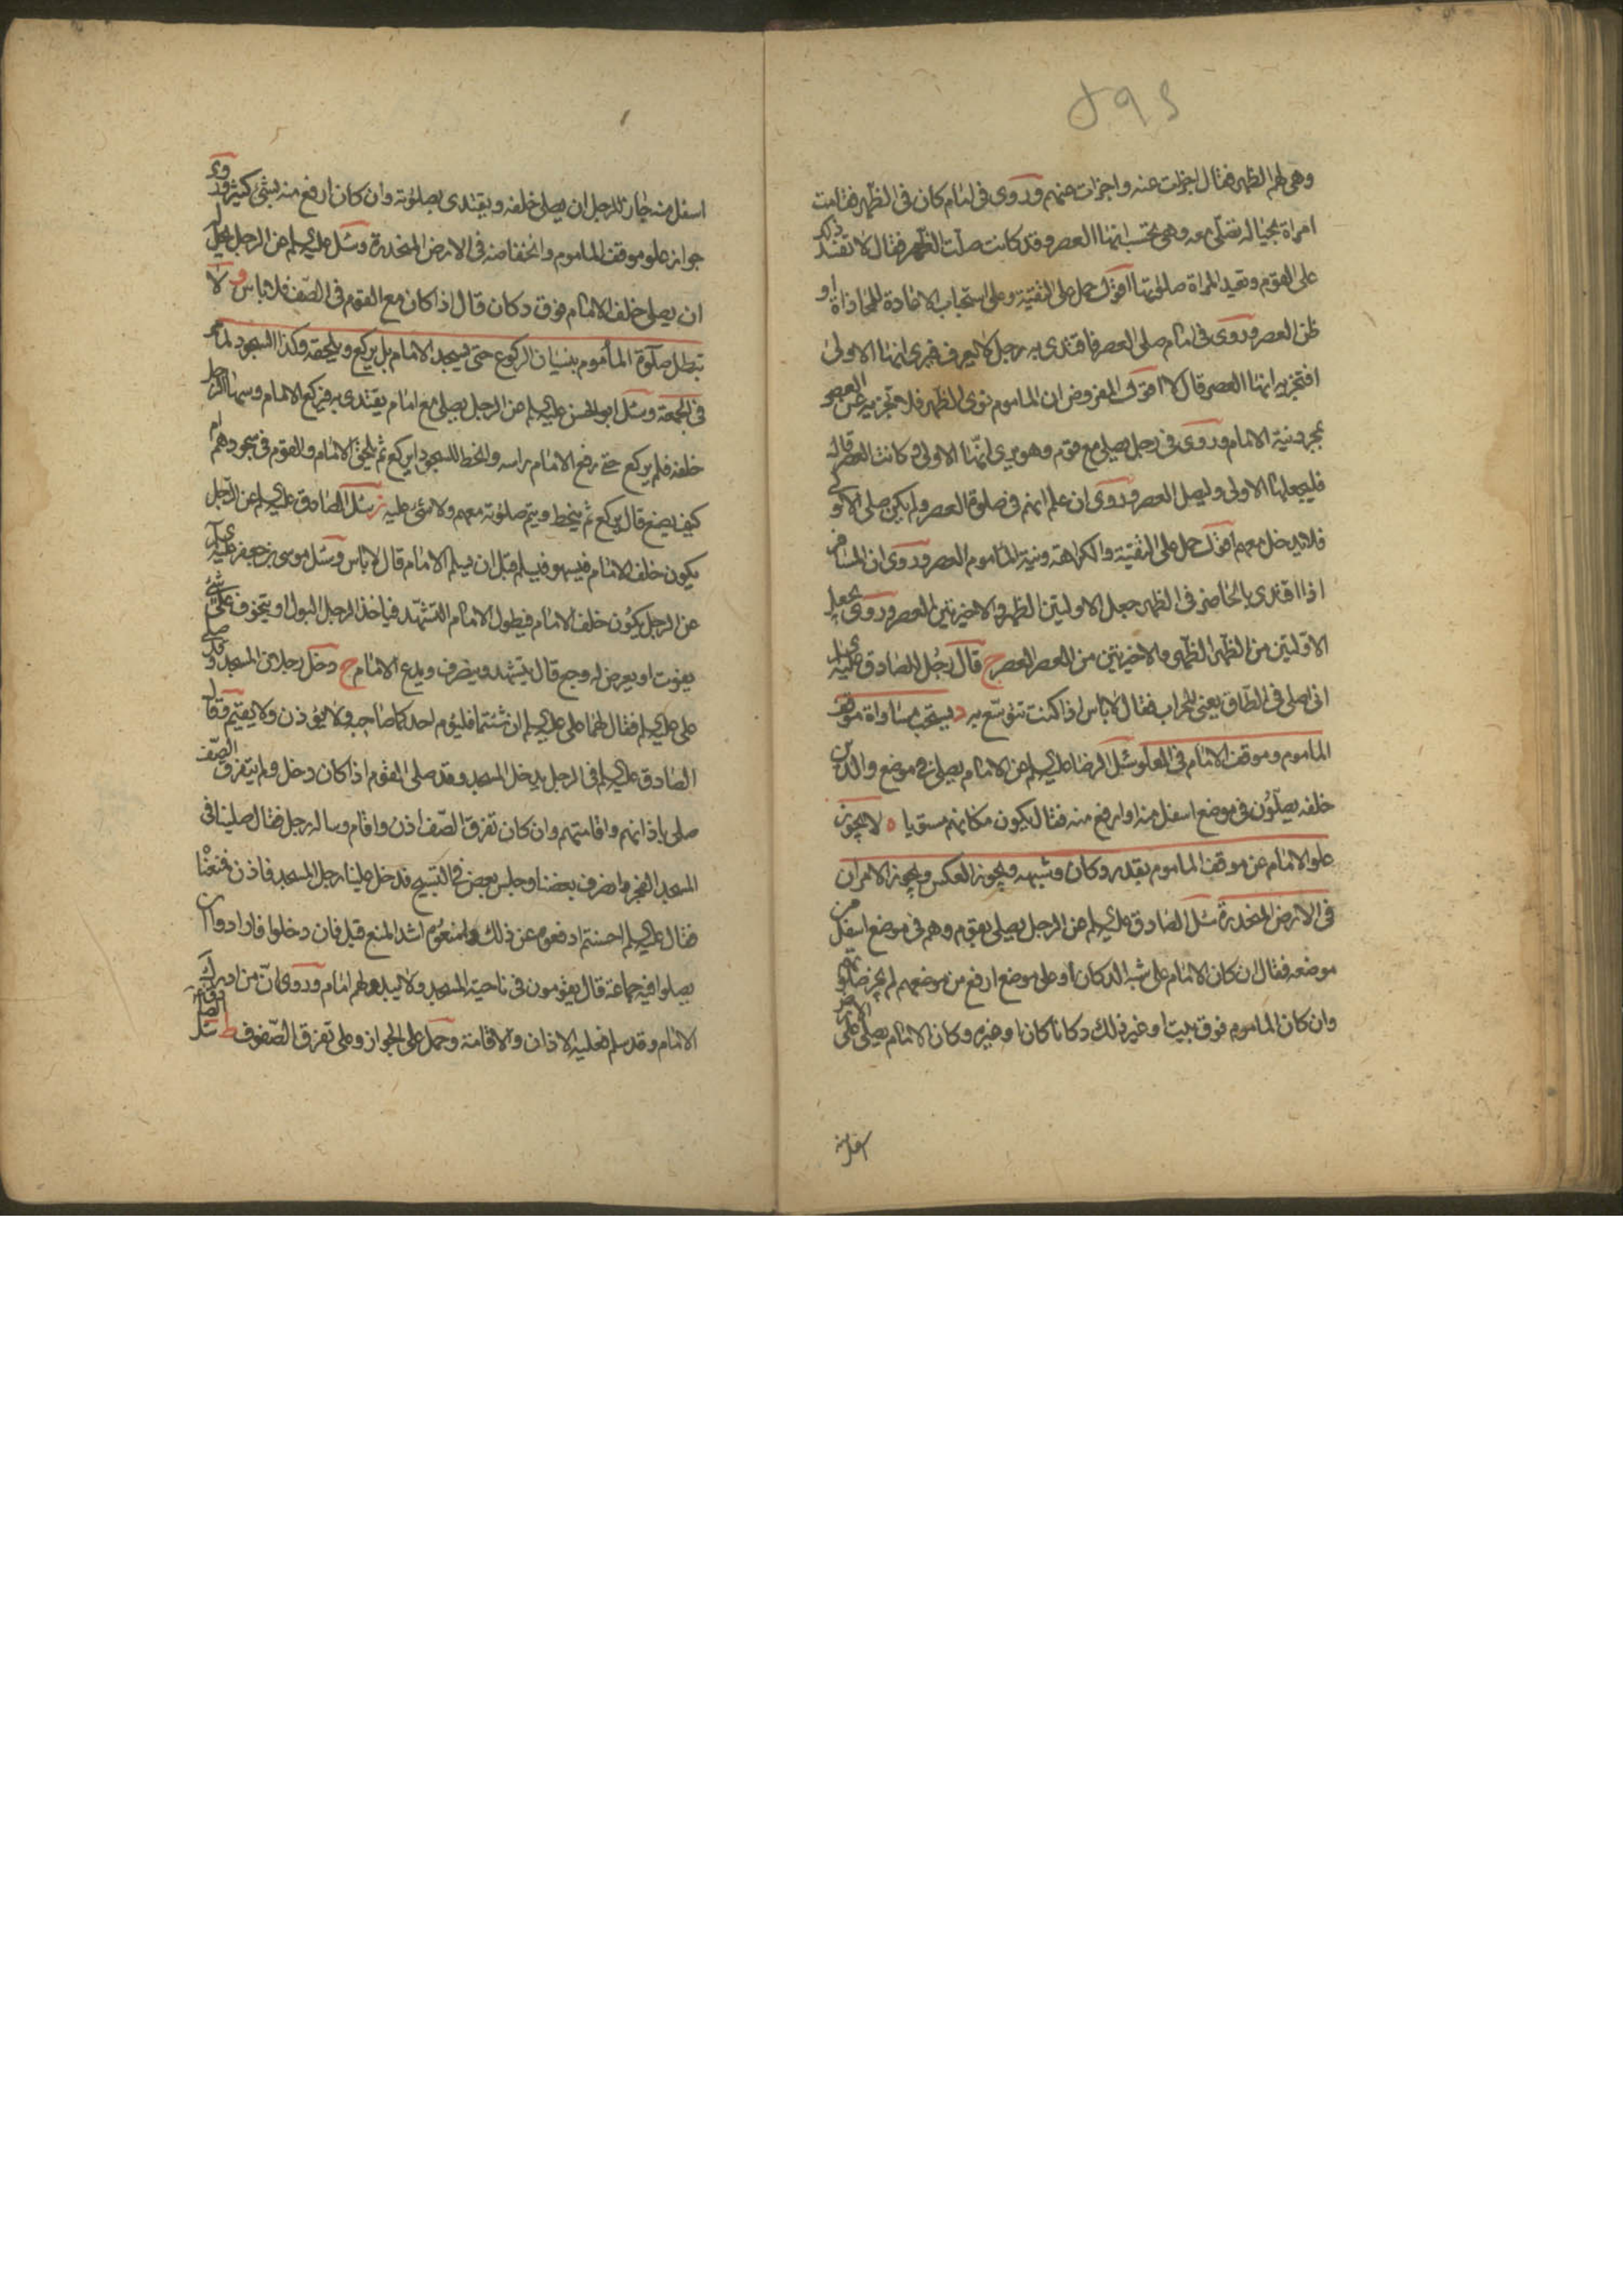 وهى لهم الظهر فقال اجزات عنه واجزات عنهم وروى فى امام كان فى الظهر فقامت
امراة بحياله تصلى معه وهى تحسب انها العصر وقد كانت صلت الظهر فقال لا تفسد ذلك
على القوم وتعيد المراة صلوتها اقول حمل على التقية وعلى استحباب الاعادة للمحاذاة او
ظن العصر وروى فى امام صلى العصر فاقتدى به رجل لا يعرف فيرى انها الاولى
افتجزيه انها العصر قال لا اقول المفروض ان الماموم نوى الظهر فلا تجزيه عن العصر
بمجرد نية الامام وروى فى رجل يصلى مع قوم وهو يرى انها الاولى وكانت العصر قال
فليجعلها الاولى وليصل العصر وروى ان علم انهم فى صلوة العصر ولم يكن صلى الاولى
فلا يدخل معهم اقول حمل على التقية والكراهة ونية الماموم العصر وروى ان المسافر
اذا اقتدى بالحاضر فى الظهر جعل الاولتين الظهر والاخيرتين العصر وروى يجعل
الاولتين من الظهر الظهر والاخيرتين من العصر العصر ج قال رجل للصادق عليه السلم
انى اصلى فى الطاق يعنى المحراب فقال لا باس اذا كنت تتوسع به د يستحب مساواة موقف
الماموم وموقف الامام فى العلو سئل الرضا عليه السلم عن الامام يصلى فى موضع والذين
خلفه يصلون فى موضع اسفل منه او ارفع منه فقال يكون مكانهم مستويا ه لا يجوز
علو الامام عن موقف الماموم بقدر دكان وشبهه ويجوز العكس ويجوز الامران
فى الارض المنحدرة سئل الصادق عليه السلم عن الرجل يصلى بقوم وهم فى موضع اسفل من
موضعه فقال ان كان الامام على شبه الدكان او على موضع ارفع من موضعهم لم يجز صلوتهم
وان كان الماموم فوق بيت او غير ذلك دكانا كان او غيره وكان الامام يصلى على الارض
اسفل منه جاز للرجل ان يصلى خلفه ويقتدى بصلوته وان كان ارفع منه بشئ كثير وروى
جواز علو موقف الماموم وانخفاضه فى الارض المنحدرة وسئل عليه السلم عن الرجل يحل له
ان يصلى خلف الامام فوق دكان قال اذا كان مع القوم فى الصف فلا باس و لا
تبطل صلوة المأموم بنسيان الركوع حتى يسجد الامام بل يركع ويلحقه وكذا السجود
فى الجمعة وسئل ابو الحسن عليه السلم عن الرجل يصلى مع امام يقتدى به فركع الامام وسها الرجل
خلفه فلم يركع حتى رفع الامام راسه وانحط للسجود ايركع ثم يلحق الامام والقوم فى سجودهم ام
كيف يصنع قال يركع ثم ينحط ويتم صلوته معهم ولا شئ عليه ز سئل الصادق عليه السلم عن الرجل
يكون خلف الامام فيسهو فيسلم قبل ان يسلم الامام قال لا باس وسئل موسى بن جعفر عليه السلم
عن الرجل يكون خلف الامام فيطول الامام التشهد فياخذ الرجل البول او يتخوف على شئ
يفوت او يعرض له وجع قال يتشهد وينصرف ويدع الامام ح دخل رجلان المسجد وقد صلى
على عليه السلم فقال لهما على عليه السلم ان شئتما فليؤم احدكما صاحبه ولا يؤذن ولا يقيم وقال
الصادق عليه السلم فى الرجل يدخل المسجد وقد صلى القوم اذا كان دخل ولم يتفرق الصف
صلى باذانهم واقامتهم وان كان تفرق الصف اذن واقام وساله رجل فقال صلينا فى
المسجد الفجر وانصرف بعضنا وجلس بعض فى التسبيح فدخل علينا رجل المسجد فاذن فمنعنا
فقال عليه السلم احسنتم ادفعوه عن ذلك وامنعوه اشد المنع قيل فان دخلوا فارادوا ان
يصلوا فيه جماعة قال يقومون فى ناحية المسجد ولا يبدو لهم امام وروى ان من ادرك
الامام وقد سلم فعليه الاذان والاقامة وحمل على الجواز وعلى تفرق الصفوف ط سئل الصادق